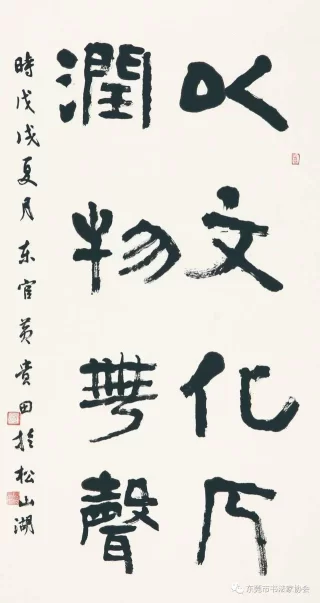 以文化人
潤物無聲
時戊戌夏月东官黄貴田於松山湖
东莞市书法家协会